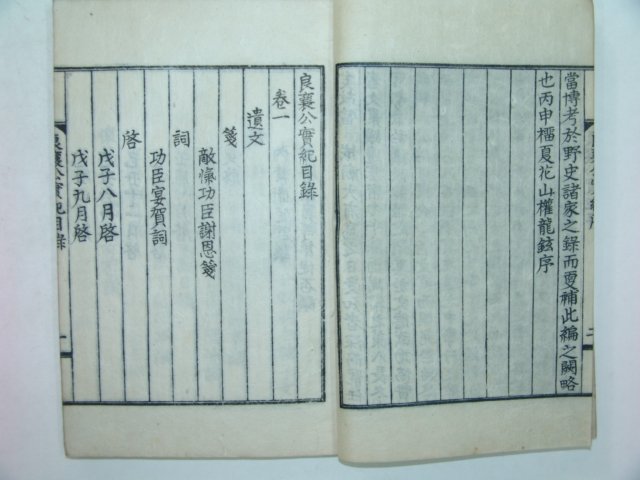 當博考於野史諸家之錄而更補此編之闕略
也丙申榴夏花山權龍鉉序
良襄公實紀目錄
卷一
遺文
箋
敵愾功臣謝恩箋
詞
功臣宴賀詞
啓
戊子八月啓
戊子九月啓
良襄公實紀目錄
一